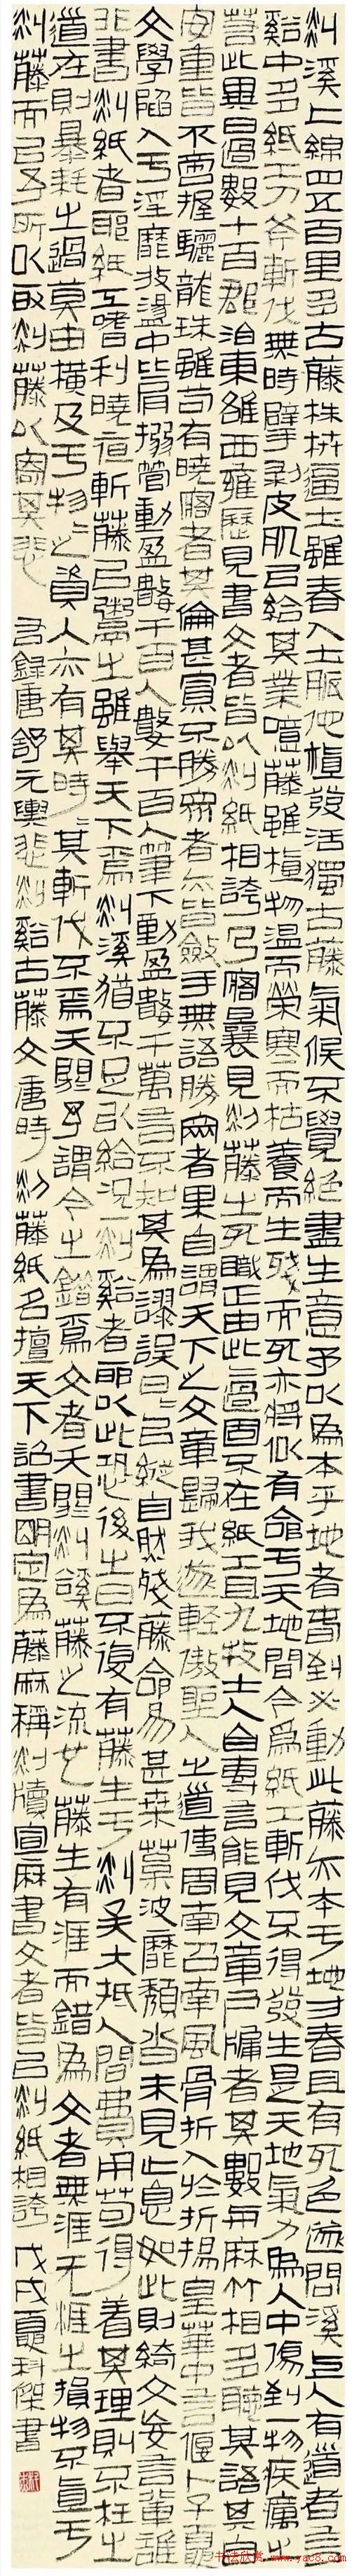 剡溪上綿四五百里多古藤株枿逼土雖春入土脈他植發活獨古藤氣候不覺絕盡生意予以為本乎地者春到必動此藤亦本于地方春且有死色遂問溪上人有道者言
谿中多紙工刀斧斬伐無時擘剝皮肌以給其業噫藤雖植物溫而榮寒而枯養而生殘而死亦將似有命于天地間今為紙工斬伐不得發生是天地氣力為人中傷到一物疾癘之
若此異日過數十百郡洎東雒西雍歷見書文者皆以剡紙相誇乃寤曩見剡藤之死職正由此﹦過固不在紙工且九牧士人自專言能見文章戶牖者其數與麻竹相多聽其語其自
安重皆不啻握驪龍珠雖苟有曉寤者其倫甚寡不勝眾者亦皆斂手無語勝眾者果自謂天下之文章歸我遂輕傲聖人之道使周南召南風骨折入於折揚皇華中言偃卜子夏
文學陷入于淫靡放蕩中比肩搦管動盈數千百人數千百人筆下動盈數千萬言不知其為謬誤日﹦以縱自然殘藤命易甚桑葉波靡頹沓未見止息如此則綺文妄言輩誰
非書剡紙者耶紙工嗜利曉夜斬藤以鬻之雖舉天下為剡溪猶不足以給況一剡谿者耶以此恐後之日不復有藤生于剡矣大抵人間費用苟得著其理則不枉之
道在則暴耗之過莫由橫及于物﹦之資人亦有其時﹦其斬伐不為夭閼予謂今之錯為文者夭閼剡谿藤之流也藤生有涯而錯為文者無涯无涯之損物不直于
剡藤而已予所以取剡藤以寄其悲 右錄唐舒元輿悲剡谿古藤文唐時剡藤紙名擅天下詔書明定為藤麻稱剡牘宣麻書文者皆以剡紙相誇 戊戌夏科傑書
书法欣赏 www.yac8.com